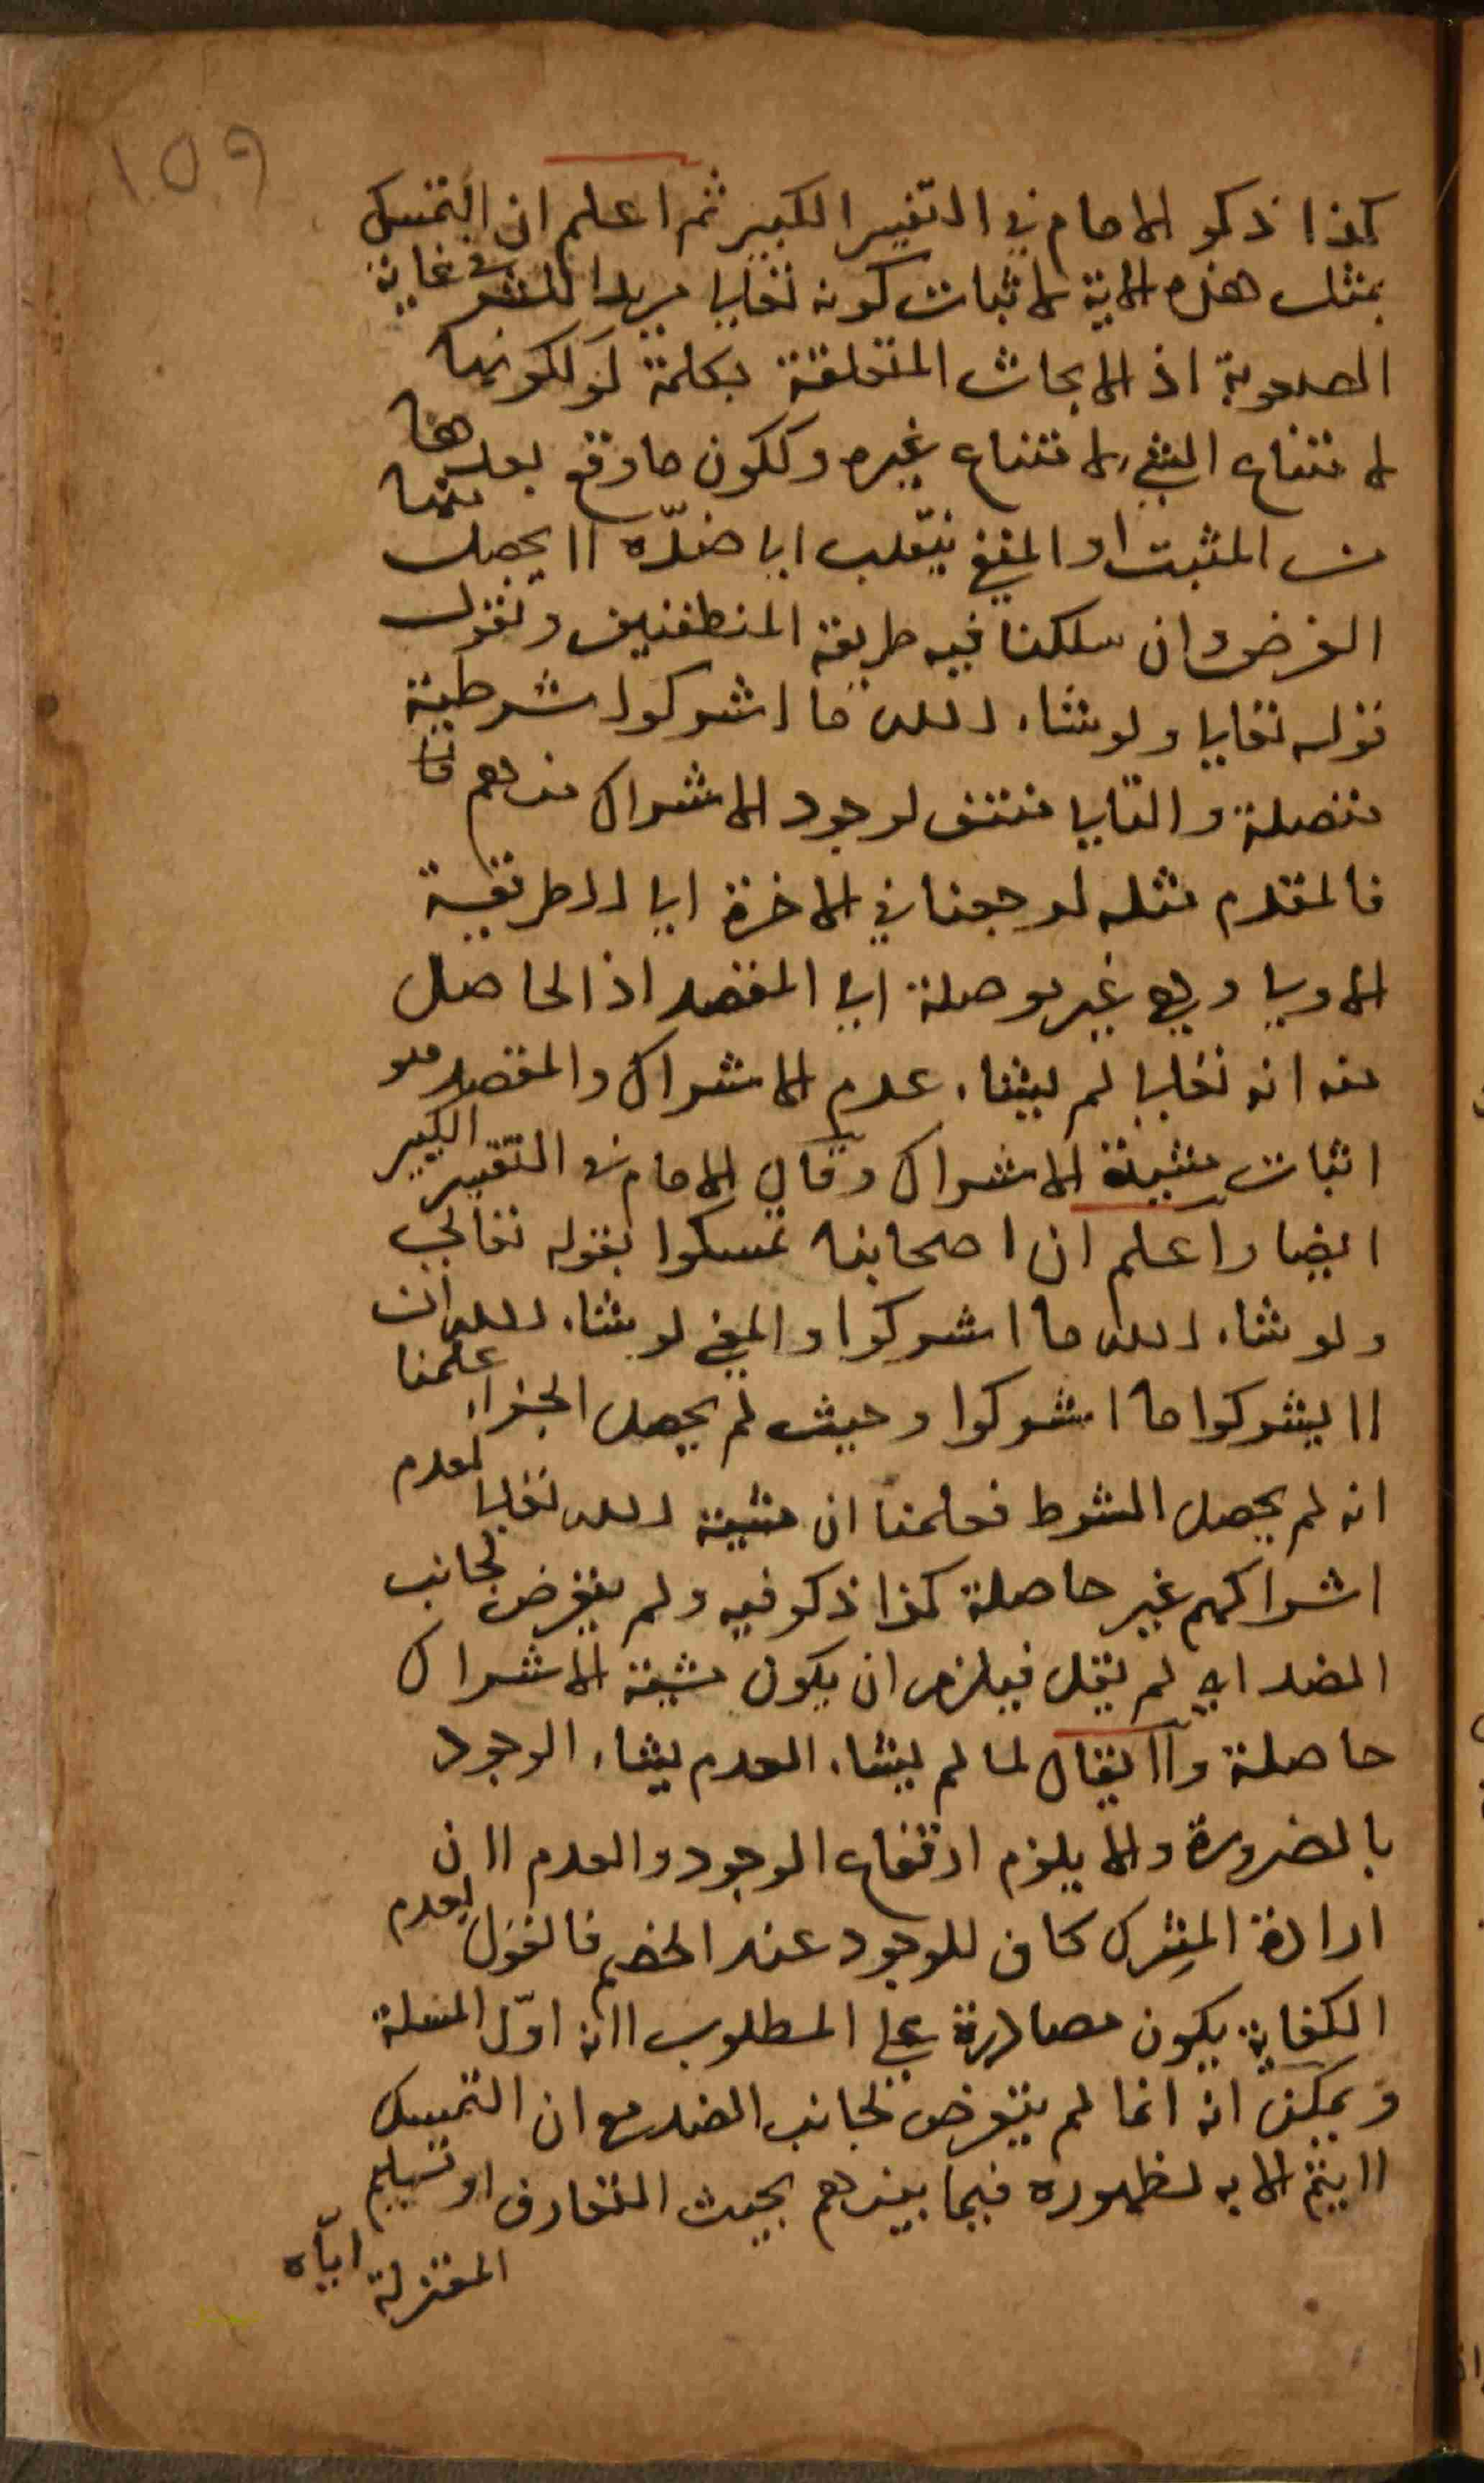 ١٥٩
كذا ذكر الامام في التفسير الكبير ثم اعلم ان التمسك
بمثل هذه الاية لاثبات كونه تعالى مريدا للشر في غاية
الصعوبة اذ الابحاث المتعلقة بكلمة لو لكونها
لامتناع الشيء لامتناع غيره ولكون ما وقع بعدها
من المثبت او المنفي ينقلب الى ضده لا يحصل
الغرض وان سلكنا فيه طريقة المنطقيين ونقول
قوله تعالى ولو شاء الله ما اشركوا شرطية
متصلة والتالي منتف لوجود الاشراك منهم
فالمقدم مثله لرجعنا في الاخرة الى الطريقة
الاولى وهي غير موصلة الى المقصد اذ الحاصل
منه انه تعالى لم يشاء عدم الاشراك والمقصد هو
اثبات مشية الاشراك وقال الامام في التفسير الكبير
ايضا واعلم ان اصحابنا تمسكوا بقوله تعالى
ولو شاء الله ما اشركوا والمعنى لو شاء الله ان
لا يشركوا ما اشركوا وحيث لم يحصل الجزاء علمنا
انه لم يحصل الشرط فعلمنا ان مشية الله تعالى لعدم
اشراكهم غير حاصلة كذا ذكر فيه ولم يتعرض لجانب
الضد اي لم يقل فيلزم ان يكون مشية الاشراك
حاصلة ولا يقال لما لم يشاء العدم يشاء الوجود
بالضرورة والا يلزم ارتفاع الوجود والعدم لان
ارادة المشرك كاف للوجود عند الخصم فالقول بعدم
الكفاية يكون مصادرة على المطلوب لانه اول المسئلة
ويمكن انه انما لم يتعرض لجانب الضد مع ان التمسك
لا يتم الا به لظهوره فيما بينهم بحيث التعارف او تسليم
المعتزلة اياه